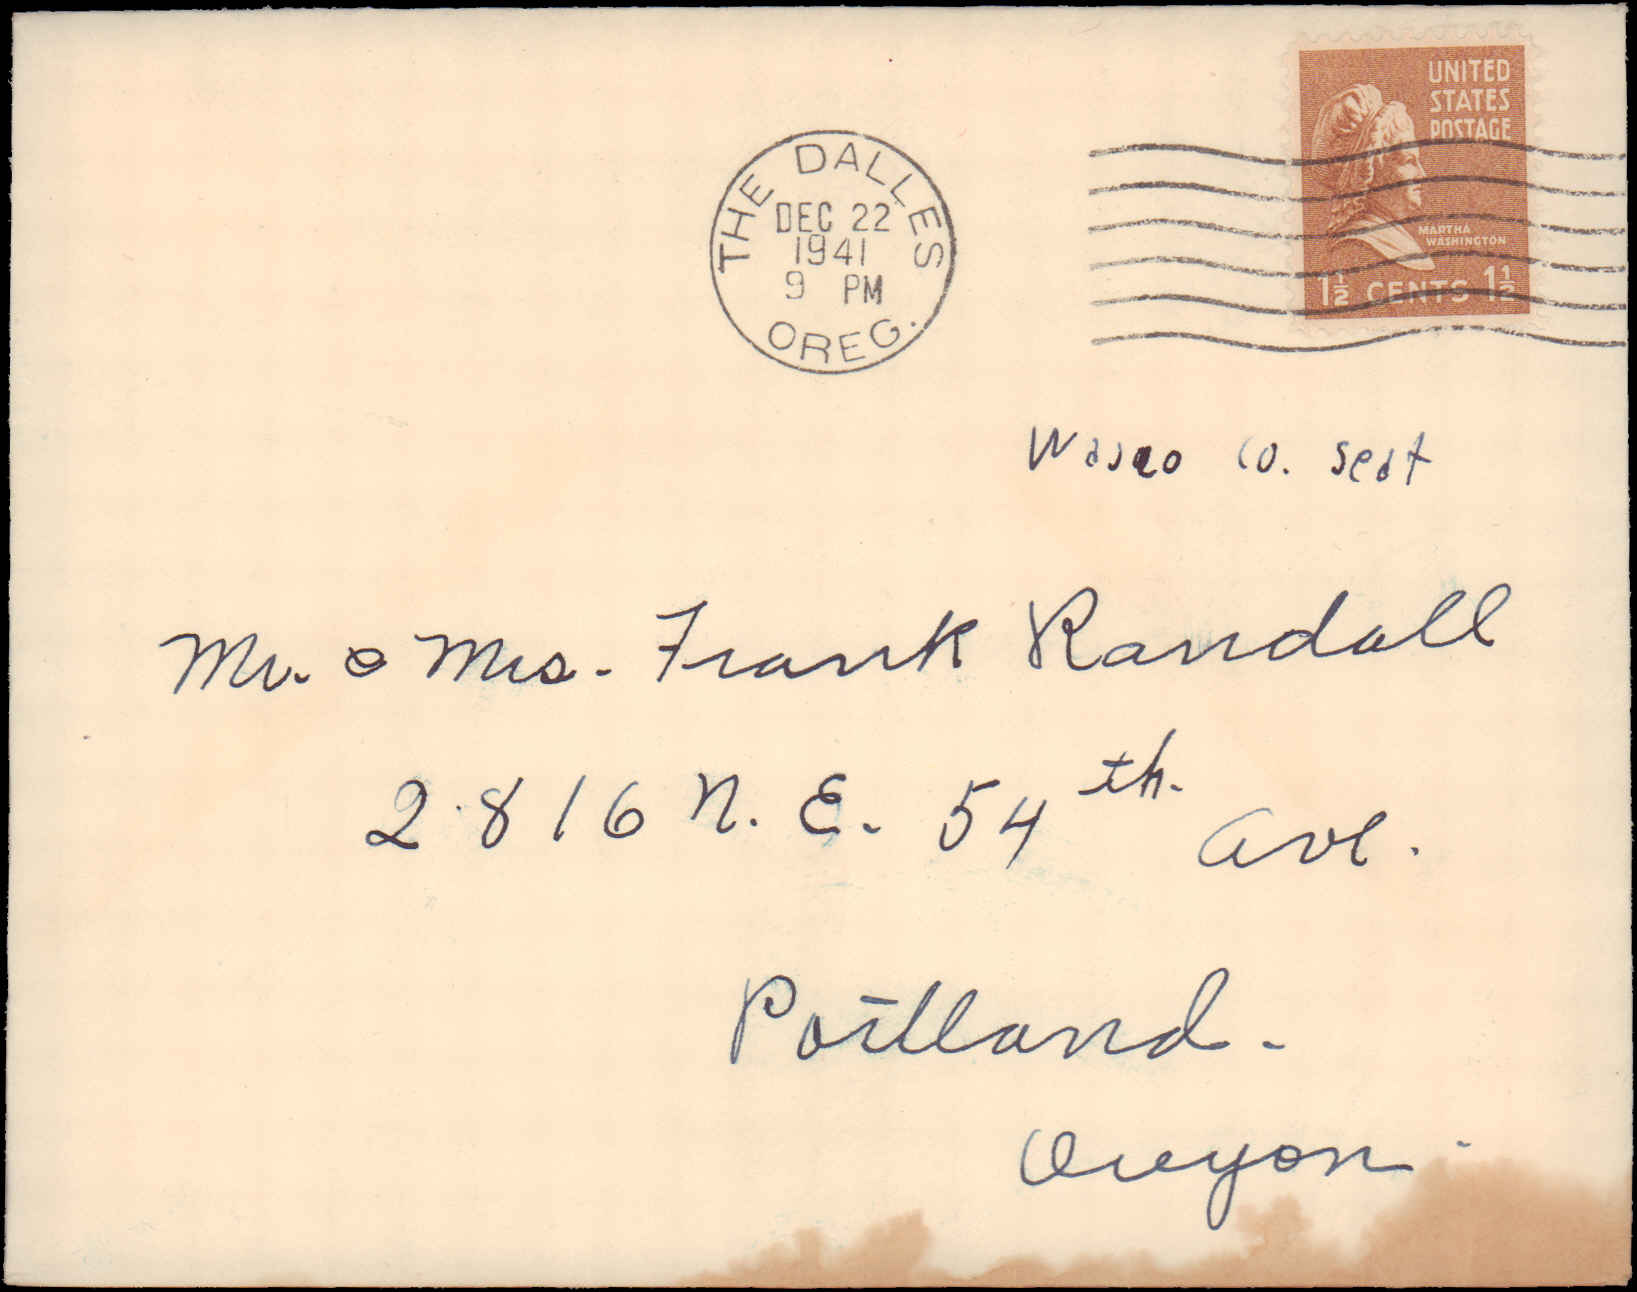 UNITED
STATES
POSTAGE
MARTHA
WASHINGTON
1½ CENTS 1½
THE DALLES
DEC 22
1941
9 PM
OREG.
Wasco Co. Seat
Mr. & Mrs. Frank Randall
2816 N. E. 54th. Ave.
Portland.
Oregon.